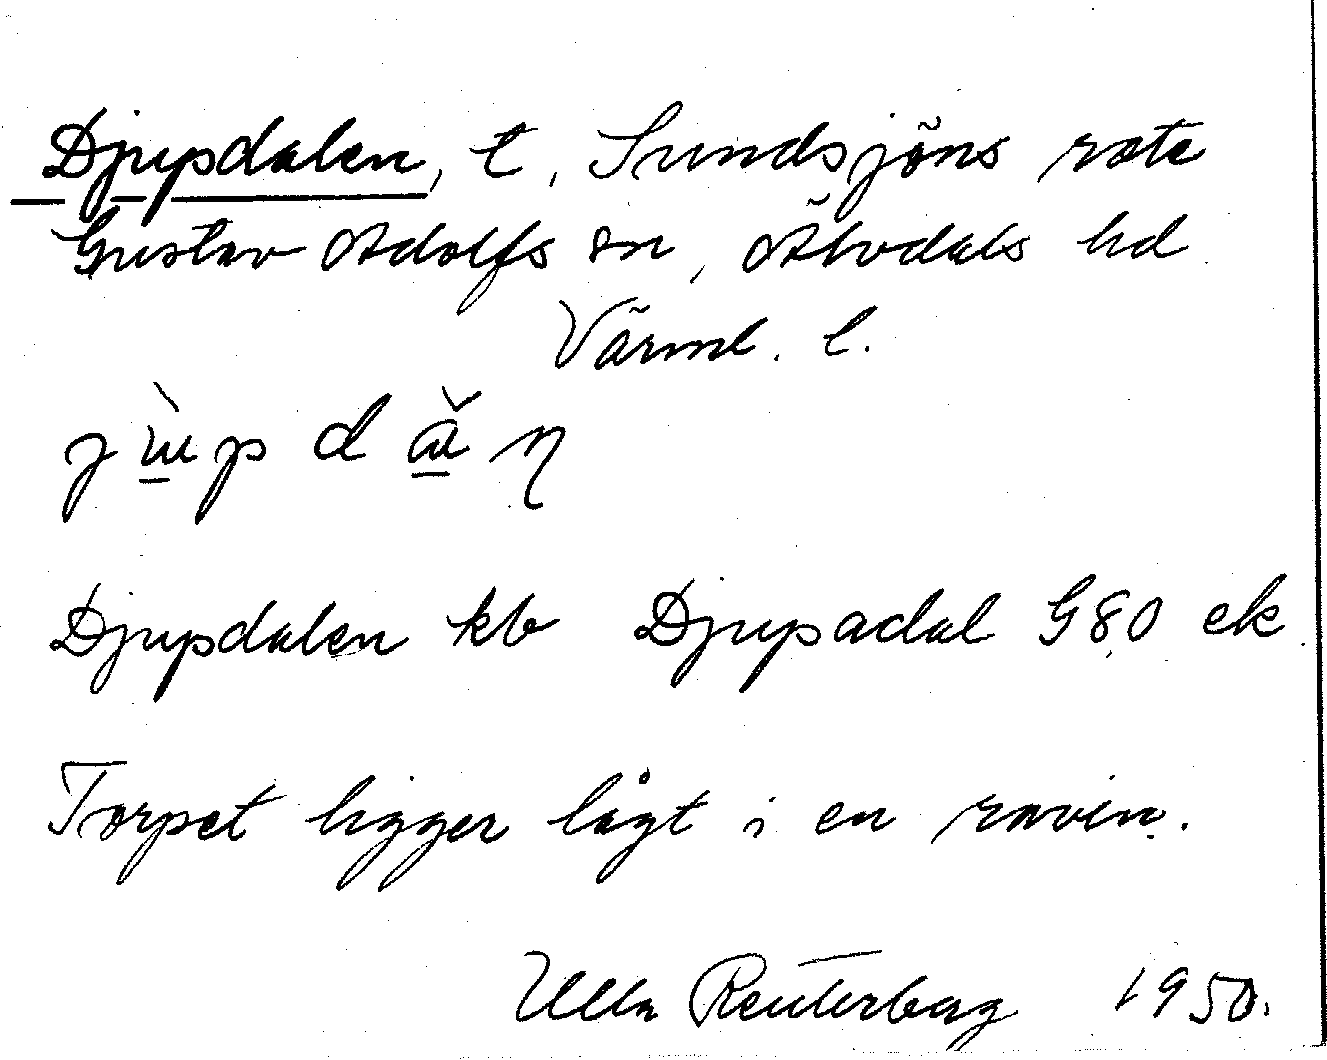 Djupdalen, t, Sundsjöns rote
Gustav Adolfs sn, Älvdals hd
Värml. l.
Djupdalen kb Djupadal G80 ek
Torpet ligger lågt i en ravin.
Ulla Reuterborg 1950.